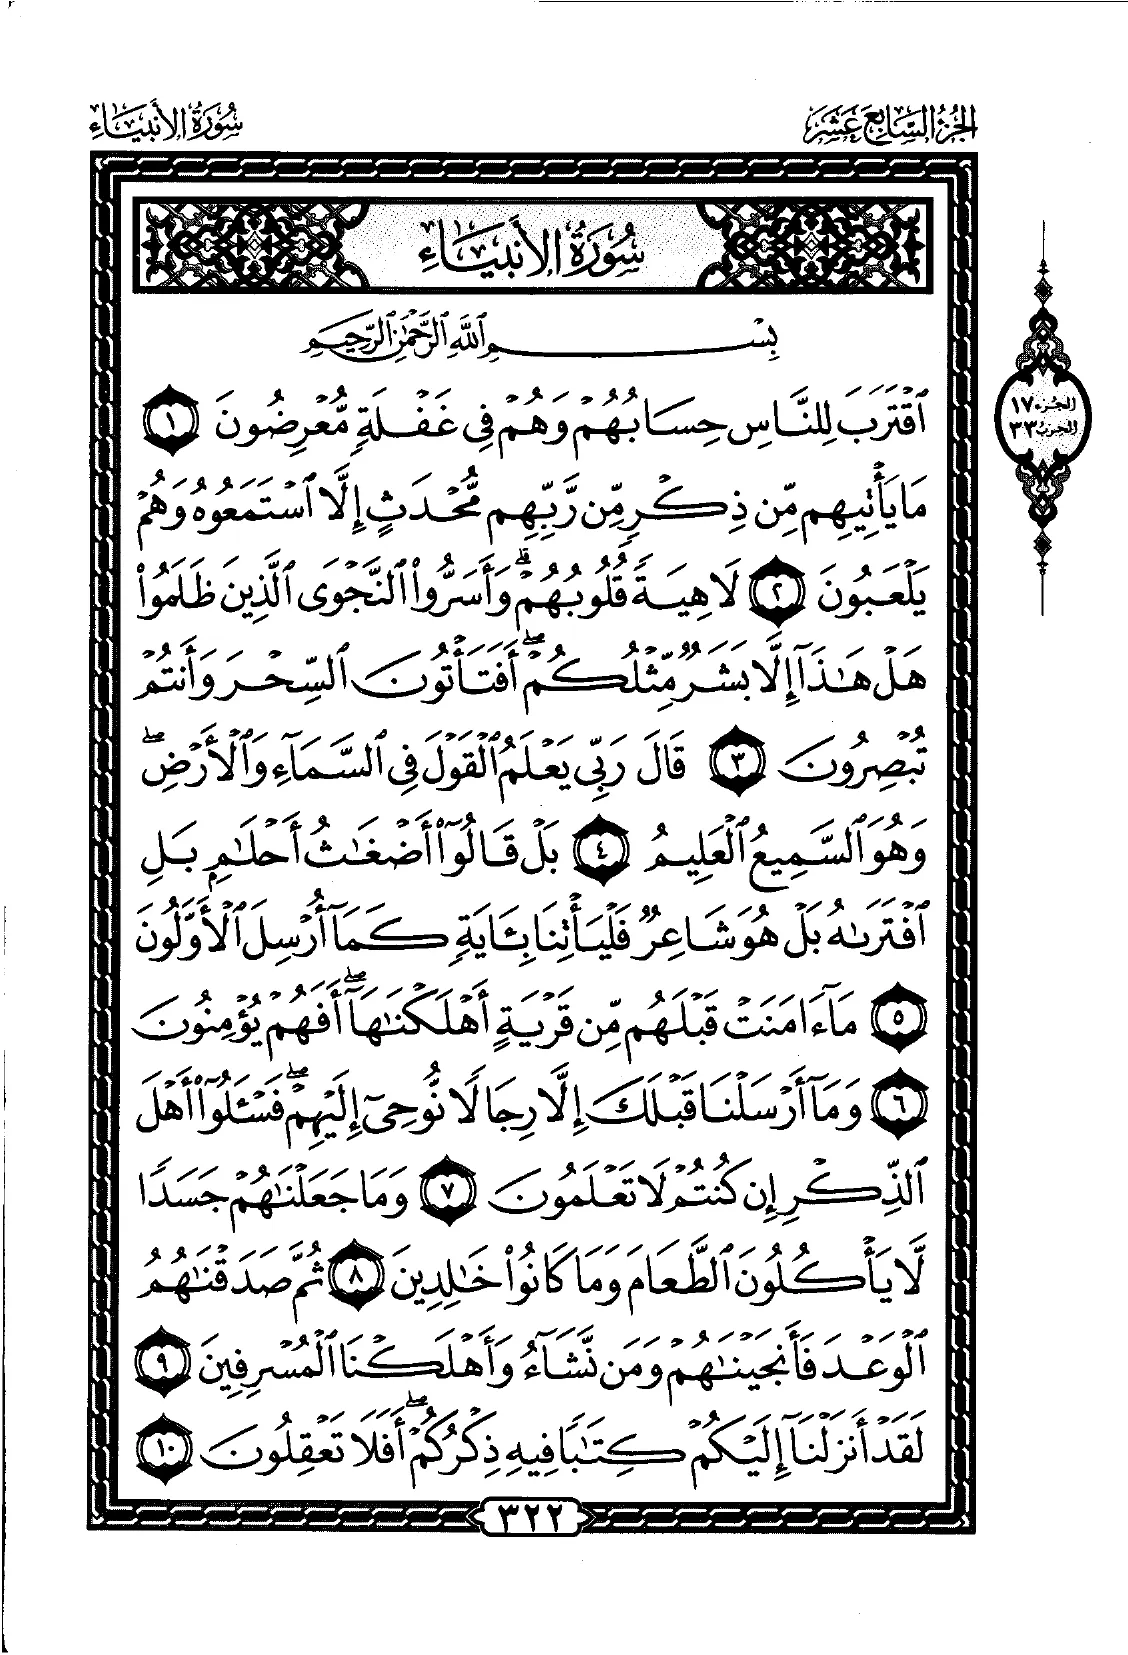 الجزء السابع عشر
سورة الأنبياء
سُورَةُ الأَنبِيَاءِ
بِسْمِ ٱللَّهِ ٱلرَّحْمَٰنِ ٱلرَّحِيمِ
ٱقْتَرَبَ لِلنَّاسِ حِسَابُهُمْ وَهُمْ فِى غَفْلَةٍ مُّعْرِضُونَ ١
الجزء ١٧
الحزب ٣٣
مَا يَأْتِيهِم مِّن ذِكْرٍ مِّن رَّبِّهِم مُّحْدَثٍ إِلَّا ٱسْتَمَعُوهُ وَهُمْ
يَلْعَبُونَ ٢ لَاهِيَةً قُلُوبُهُمْ ۗ وَأَسَرُّوا۟ ٱلنَّجْوَى ٱلَّذِينَ ظَلَمُوا۟
هَلْ هَٰذَآ إِلَّا بَشَرٌ مِّثْلُكُمْ ۖ أَفَتَأْتُونَ ٱلسِّحْرَ وَأَنتُمْ
تُبْصِرُونَ ٣ قَالَ رَبِّى يَعْلَمُ ٱلْقَوْلَ فِى ٱلسَّمَآءِ وَٱلْأَرْضِ ۖ
وَهُوَ ٱلسَّمِيعُ ٱلْعَلِيمُ ٤ بَلْ قَالُوٓا۟ أَضْغَٰثُ أَحْلَٰمٍۭ بَلِ
ٱفْتَرَىٰهُ بَلْ هُوَ شَاعِرٌ فَلْيَأْتِنَا بِـَٔايَةٍ كَمَآ أُرْسِلَ ٱلْأَوَّلُونَ
٥ مَآ ءَامَنَتْ قَبْلَهُم مِّن قَرْيَةٍ أَهْلَكْنَٰهَآ ۖ أَفَهُمْ يُؤْمِنُونَ
٦ وَمَآ أَرْسَلْنَا قَبْلَكَ إِلَّا رِجَالًا نُّوحِىٓ إِلَيْهِمْ ۖ فَسْـَٔلُوٓا۟ أَهْلَ
ٱلذِّكْرِ إِن كُنتُمْ لَا تَعْلَمُونَ ٧ وَمَا جَعَلْنَٰهُمْ جَسَدًا
لَّا يَأْكُلُونَ ٱلطَّعَامَ وَمَا كَانُوا۟ خَٰلِدِينَ ٨ ثُمَّ صَدَقْنَٰهُمُ
ٱلْوَعْدَ فَأَنجَيْنَٰهُمْ وَمَن نَّشَآءُ وَأَهْلَكْنَا ٱلْمُسْرِفِينَ ٩
لَقَدْ أَنزَلْنَآ إِلَيْكُمْ كِتَٰبًا فِيهِ ذِكْرُكُمْ ۖ أَفَلَا تَعْقِلُونَ ١٠
٣٢٢